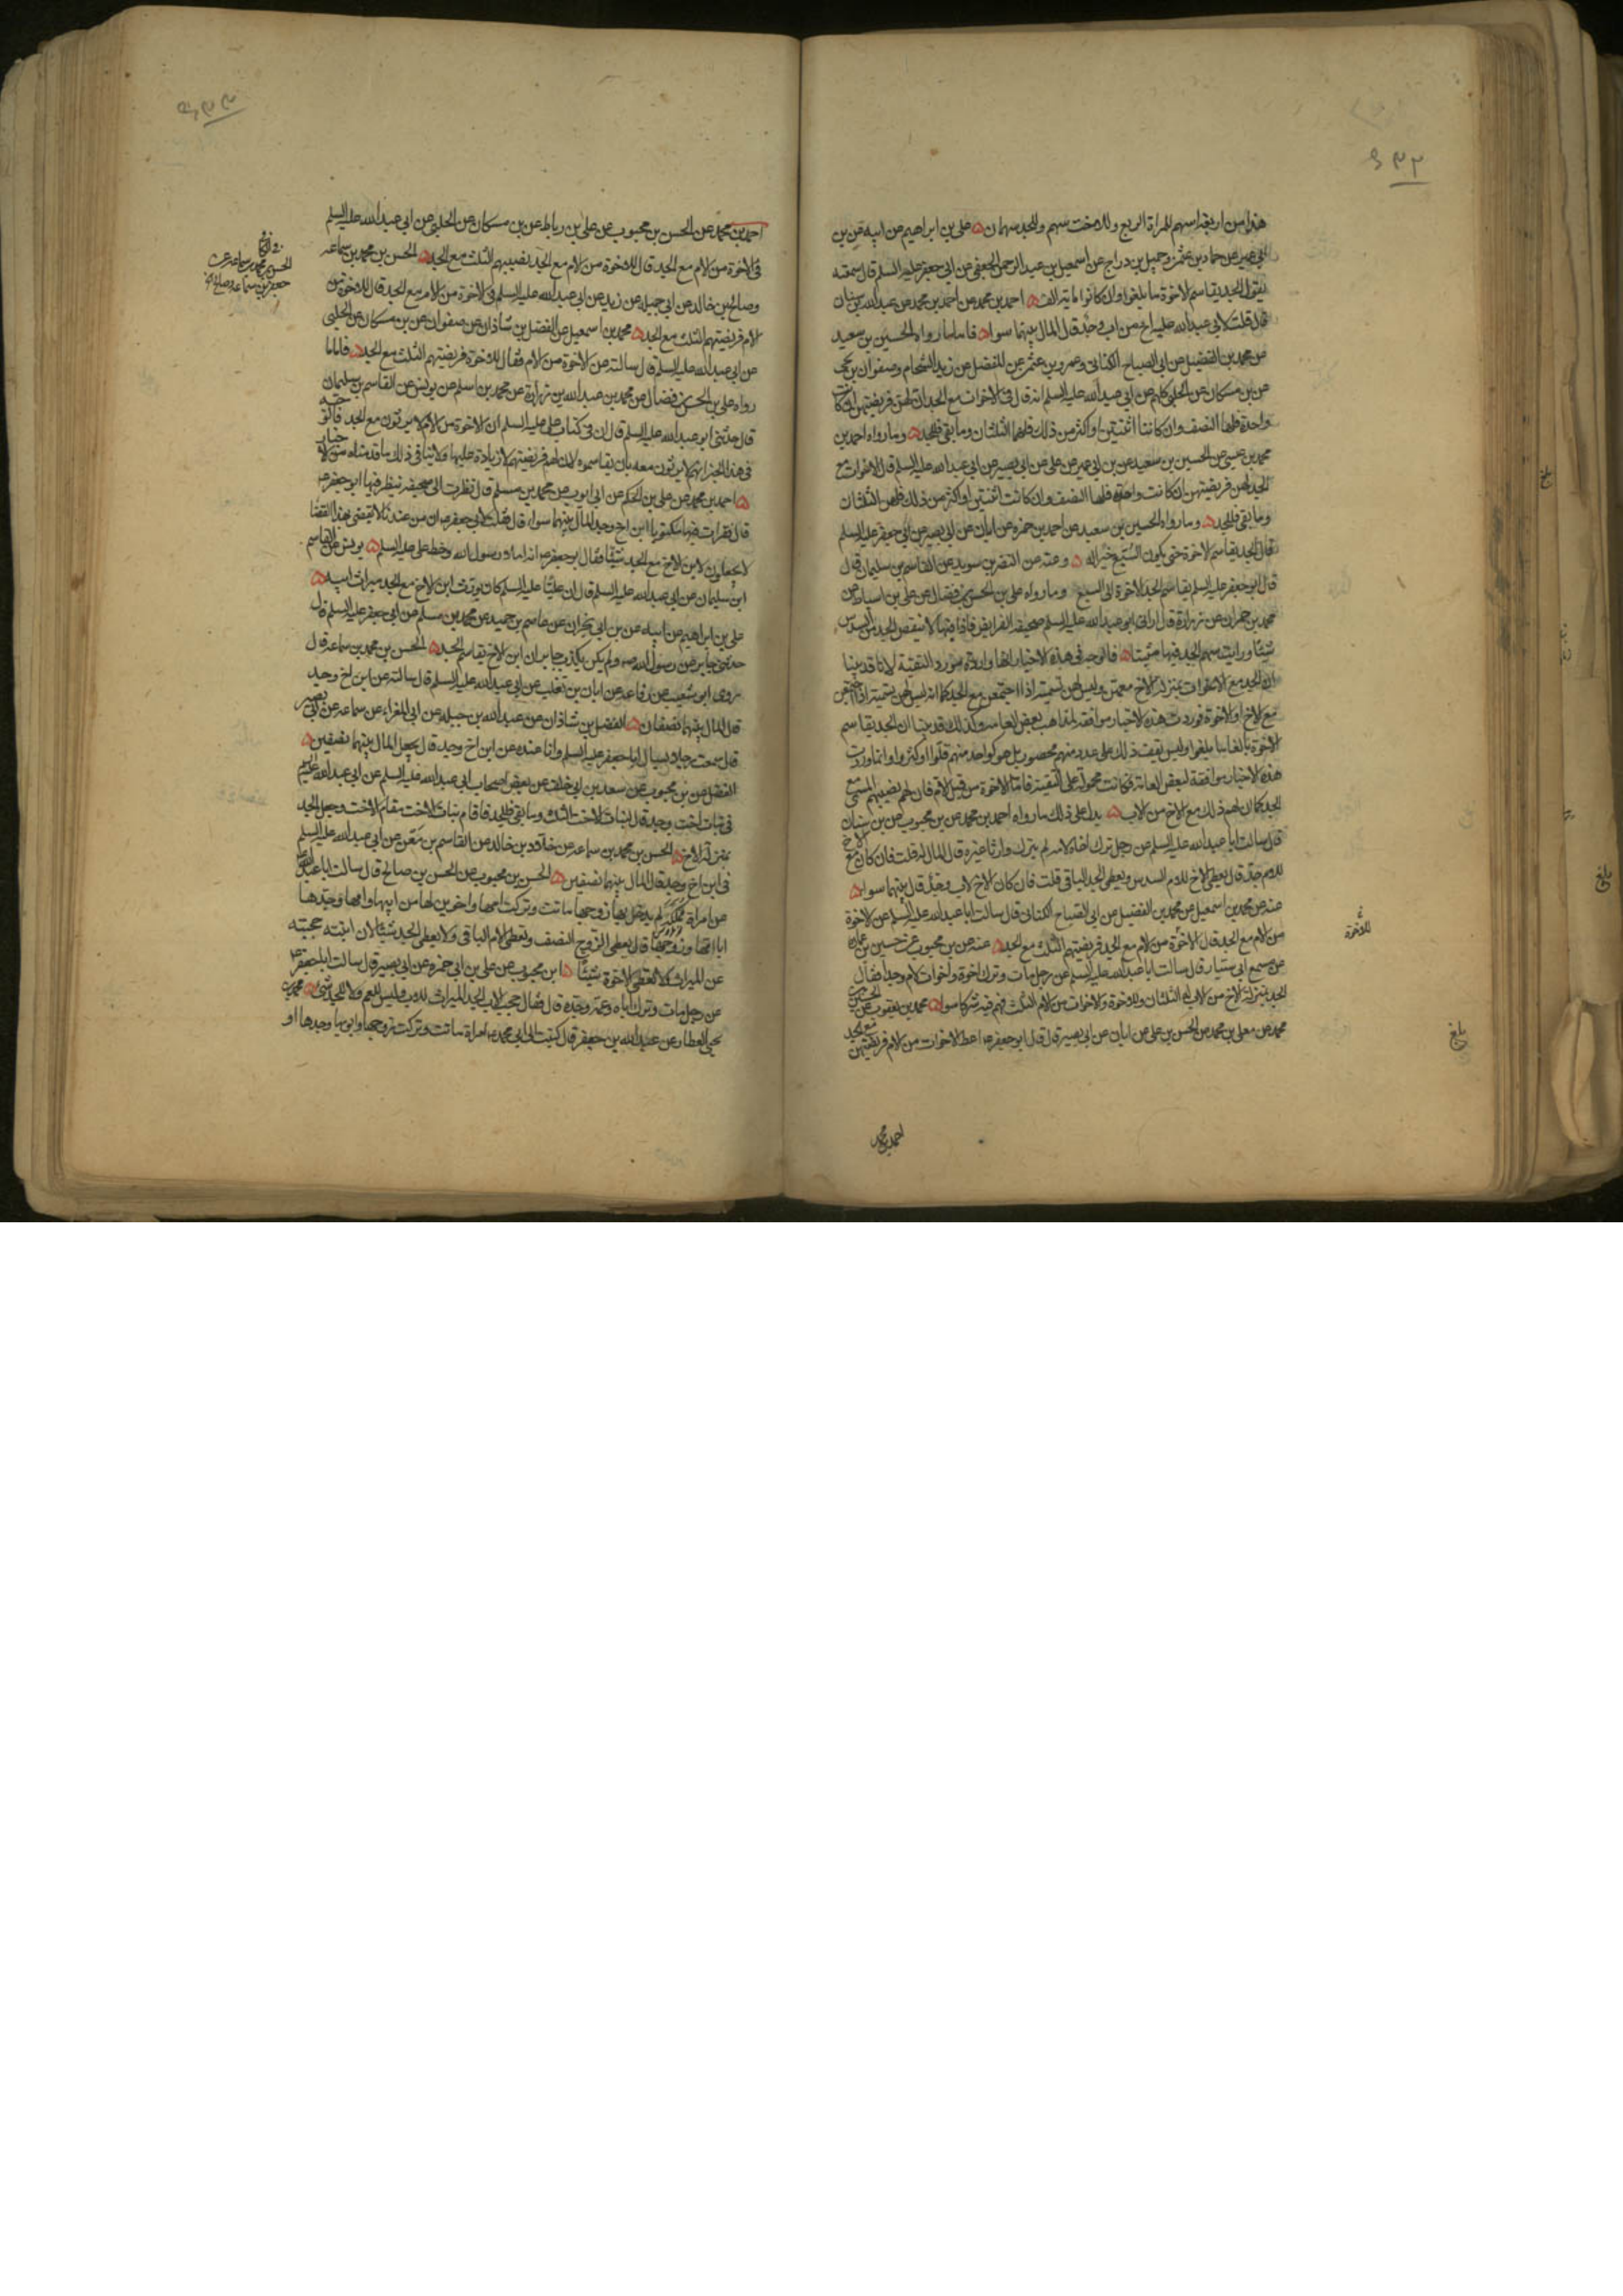 هذا من اربعة اسهم للمراة الربع وللاخت سهم وللجد سهمان علي بن ابراهيم عن ابيه عن بن
ابي عمير عن حماد بن عثمن وجميل بن دراج عن اسمعيل بن عبد الرحمن الجعفي عن ابي جعفر عليه السلم قال سمعته
يقول الجد يقاسم الاخوة ما بلغوا وان كانوا ماية الف احمد بن محمد عن احمد بن محمد عن عبد الله بن سنان
قال قلت لابي عبد الله عليه اخ من اب وجد قال المال بينهما سواء فاما ما رواه الحسين بن سعيد
عن محمد بن الفضيل عن ابي الصباح الكناني وعمرو بن عثمن عن المفضل عن زيد الشحام وصفوان بن يحيى
عن بن مسكان عن الحلبي كلهم عن ابي عبد الله عليه السلم انه قال في الاخوات مع الجد ان لهن فريضتهن ان كانت
واحدة فلها النصف وان كانتا اثنتين او اكثر من ذلك فلهما الثلثان وما بقي فللجد وما رواه احمد بن
محمد بن عيسى عن الحسين بن سعيد عن بن ابي عمير عن علي عن ابي بصير عن ابي عبد الله عليه السلم قال الاخوات مع
الجد لهن فريضتهن ان كانت واحدة فلها النصف وان كانت اثنتين او اكثر من ذلك فلهن الثلثان
وما بقي فللجد وما رواه الحسين بن سعيد عن احمد بن حمزة عن ابان عن ابي بصير عن ابي جعفر عليه السلم
قال الجد يقاسم الاخوة حتى يكون السبع خيرا له وعنه عن النضر بن سويد عن القاسم بن سليمان قال
قال ابو جعفر عليه السلم يقاسم الجد الاخوة الى السبع وما رواه علي بن الحسن بن فضال عن علي بن اسباط عن
محمد بن حمران عن زرارة قال اراني ابو عبد الله عليه السلم صحيفة الفرايض فاذا فيها لا ينقص الجد من السدس
شيئا ورايت سهم الجد فيها مثبتا فالوجه في هذه الاخبار انها واردة مورد التقية لانا قد بينا
ان الجد مع الاخوات بمنزلة الاخ معهن وليس لهن تسمية اذا اجتمعن مع الجد كما انه ليس لهن تسمية اذا اجتمعن
مع الاخ او الاخوة فوردت هذه الاخبار موافقة لمذاهب بعض العامة وكذلك قد بينا ان الجد يقاسم
الاخوة بالغا ما بلغوا وليس يقف ذلك على عدد منهم محصور بل هو كواحد منهم قلوا او كثروا وانما وردت
هذه الاخبار موافقة لبعض العامة فكانت محمولة على التقية فاما الاخوة من قبل الام فان لهم نصيبهم المسمى مع
الجد كما ان لهم ذلك مع الاخ من الاب يدل على ذلك ما رواه احمد بن محمد عن بن محبوب عن بن سنان
قال سالت ابا عبد الله عليه السلم عن رجل ترك اخاه لامه لم يترك وارثا غيره قال المال له قلت فان كان مع الاخ
للام جد قال يعطى الاخ للام السدس ويعطى الجد الباقي قلت فان كان الاخ لاب وجد قال بينهما سواء
عنه عن محمد بن اسمعيل عن محمد بن الفضيل عن ابي الصباح الكناني قال سالت ابا عبد الله عليه السلم عن الاخوة
من الام مع الجد قال الاخوة من الام مع الجد فريضتهم الثلث مع الجد عنه عن بن محبوب عن حسين بن عمارة
عن مسمع ابي سيار قال سالت ابا عبد الله عليه السلم عن رجل مات وترك اخوة واخوات لام وجدا فقال
الجد بمنزلة الاخ من الاب له الثلثان وللاخوة والاخوات من الام الثلث فهم فيه شركا سواء محمد بن يعقوب عن الحسين بن
محمد عن معلى بن محمد عن الحسن بن علي عن ابان عن ابي بصير قال قال ابو جعفر اعط الاخوات من الام فريضتهن مع الجد
للاخوة
بلغ
احمد بن محمد
احمد بن محمد عن الحسن بن محبوب عن علي بن رباط عن بن مسكان عن الحلبي عن ابي عبد الله عليه السلم
في الاخوة من الام مع الجد قال للاخوة من الام مع الجد نصيبهم الثلث مع الجد الحسن بن محمد بن سماعة
وصالح بن خالد عن ابي جميلة عن زيد عن ابي عبد الله عليه السلم في الاخوة من الام مع الجد قال للاخوة من
الام فريضتهم الثلث مع الجد محمد بن اسمعيل عن الفضل بن شاذان عن صفوان عن بن مسكان عن الحلبي
عن ابي عبد الله عليه السلم قال سالته عن الاخوة من الام فقال للاخوة فريضتهم الثلث مع الجد فاما ما
رواه علي بن الحسن بن فضال عن محمد بن عبد الله بن زرارة عن محمد بن اسلم عن يونس عن القاسم بن سليمان
قال حدثني ابو عبد الله عليه السلم قال ان في كتاب علي عليه السلم ان الاخوة من الام لا يرثون مع الجد فالوجه
في هذا الخبر انهم لا يرثون معه بان يقاسموه لان لهم فريضتهم لا زيادة عليها ولا ينافي ذلك ما قدمناه من الاخبار
احمد بن محمد عن علي بن الحكم عن ابي ايوب عن محمد بن مسلم قال نظرت الى صحيفة ينظر فيها ابو جعفر
قال فقرات فيها مكتوبا ابن اخ وجد المال بينهما سواء قال فقلت لابي جعفر ان من عندنا لا يقضي بهذا القضا
لا يجعلون لابن الاخ مع الجد شيئا فقال ابو جعفر اما انه املا رسول الله وخط علي عليه السلم يونس عن القاسم
ابن سليمان عن ابي عبد الله عليه السلم قال ان عليا عليه السلم كان يورث ابن الاخ مع الجد ميراث ابيه
علي بن ابراهيم عن ابيه عن بن ابي نجران عن عاصم بن حميد عن محمد بن مسلم عن ابي جعفر عليه السلم قال
حدثني جابر عن رسول الله ولم يكن يكذب جابر ان ابن الاخ يقاسم الجد الحسن بن محمد بن سماعة قال
روى ابو شعيب عن رفاعة عن ابان بن تغلب عن ابي عبد الله عليه السلم قال سالته عن ابن اخ وجد
قال المال بينهما نصفان الفضل بن شاذان عن عبد الله بن جبلة عن ابي المغراء عن سماعة عن ابي بصير
قال سمعت رجلا يسال ابا جعفر عليه السلم وانا عنده عن ابن اخ وجد قال يجعل المال بينهما نصفين
الفضل عن بن محبوب عن سعد بن ابي خلف عن بعض اصحاب ابي عبد الله عليه السلم عن ابي عبد الله عليه السلم
في بنات اخت وجد قال لبنات الاخت الثلث وما بقي فللجد فاقام بنات الاخت مقام الاخت وجعل الجد
بمنزلة الاخ الحسن بن محمد بن سماعة عن خالد عن القاسم بن معن عن ابي عبد الله عليه السلم
في ابن اخ وجد قال المال بينهما نصفين الحسن بن محبوب عن الحسن بن صالح قال سالت ابا عبد الله
عن امراة مملكة لم يدخل بها زوجها ماتت وتركت امها واخوين لها من ابيها وامها وجدها
ابا امها وزوجها قال يعطى الزوج النصف وتعطى الام الباقي ولا يعطى الجد شيئا لان ابنته حجبته
عن الميراث ولا تعطى الاخوة شيئا ابن محبوب عن علي بن ابي حمزة عن ابي بصير قال سالت ابا جعفر
عن رجل مات وترك اباه وعمه وجده قال فقال حجب الاب الجد الميراث للاب وليس للعم ولا للجد شي محمد بن
يحيى العطار عن عبد الله بن جعفر قال كتبت الى ابي محمد امراة ماتت وتركت زوجها وابويها وجدها او